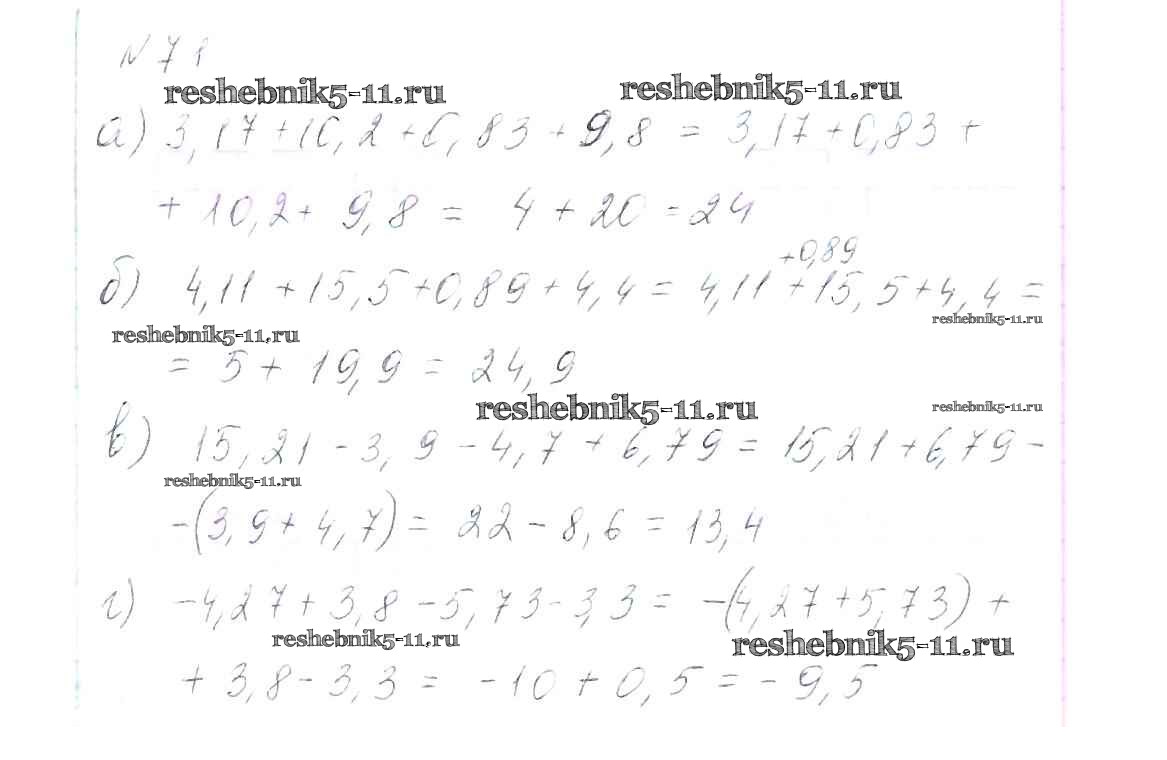 №71
reshebnik5-11.ru reshebnik5-11.ru
а) 3,17+10,2+0,83+9,8 = 3,17+0,83+
+ 10,2+ 9,8 = 4+20=24
+0,89
б) 4,11+15,5+0,89+4,4= 4,11+15,5+4,4=
reshebnik5-11.ru
reshebnik5-11.ru
= 5+ 19,9 = 24,9
reshebnik5-11.ru reshebnik5-11.ru
в) 15,21-3,9-4,7+6,79=15,21+6,79-
reshebnik5-11.ru
-(3,9+4,7)= 22-8,6=13,4
г) -4,27+3,8-5,73-3,3= -(4,27+5,73)+
reshebnik5-11.ru reshebnik5-11.ru
+ 3,8-3,3= -10+0,5=-9,5